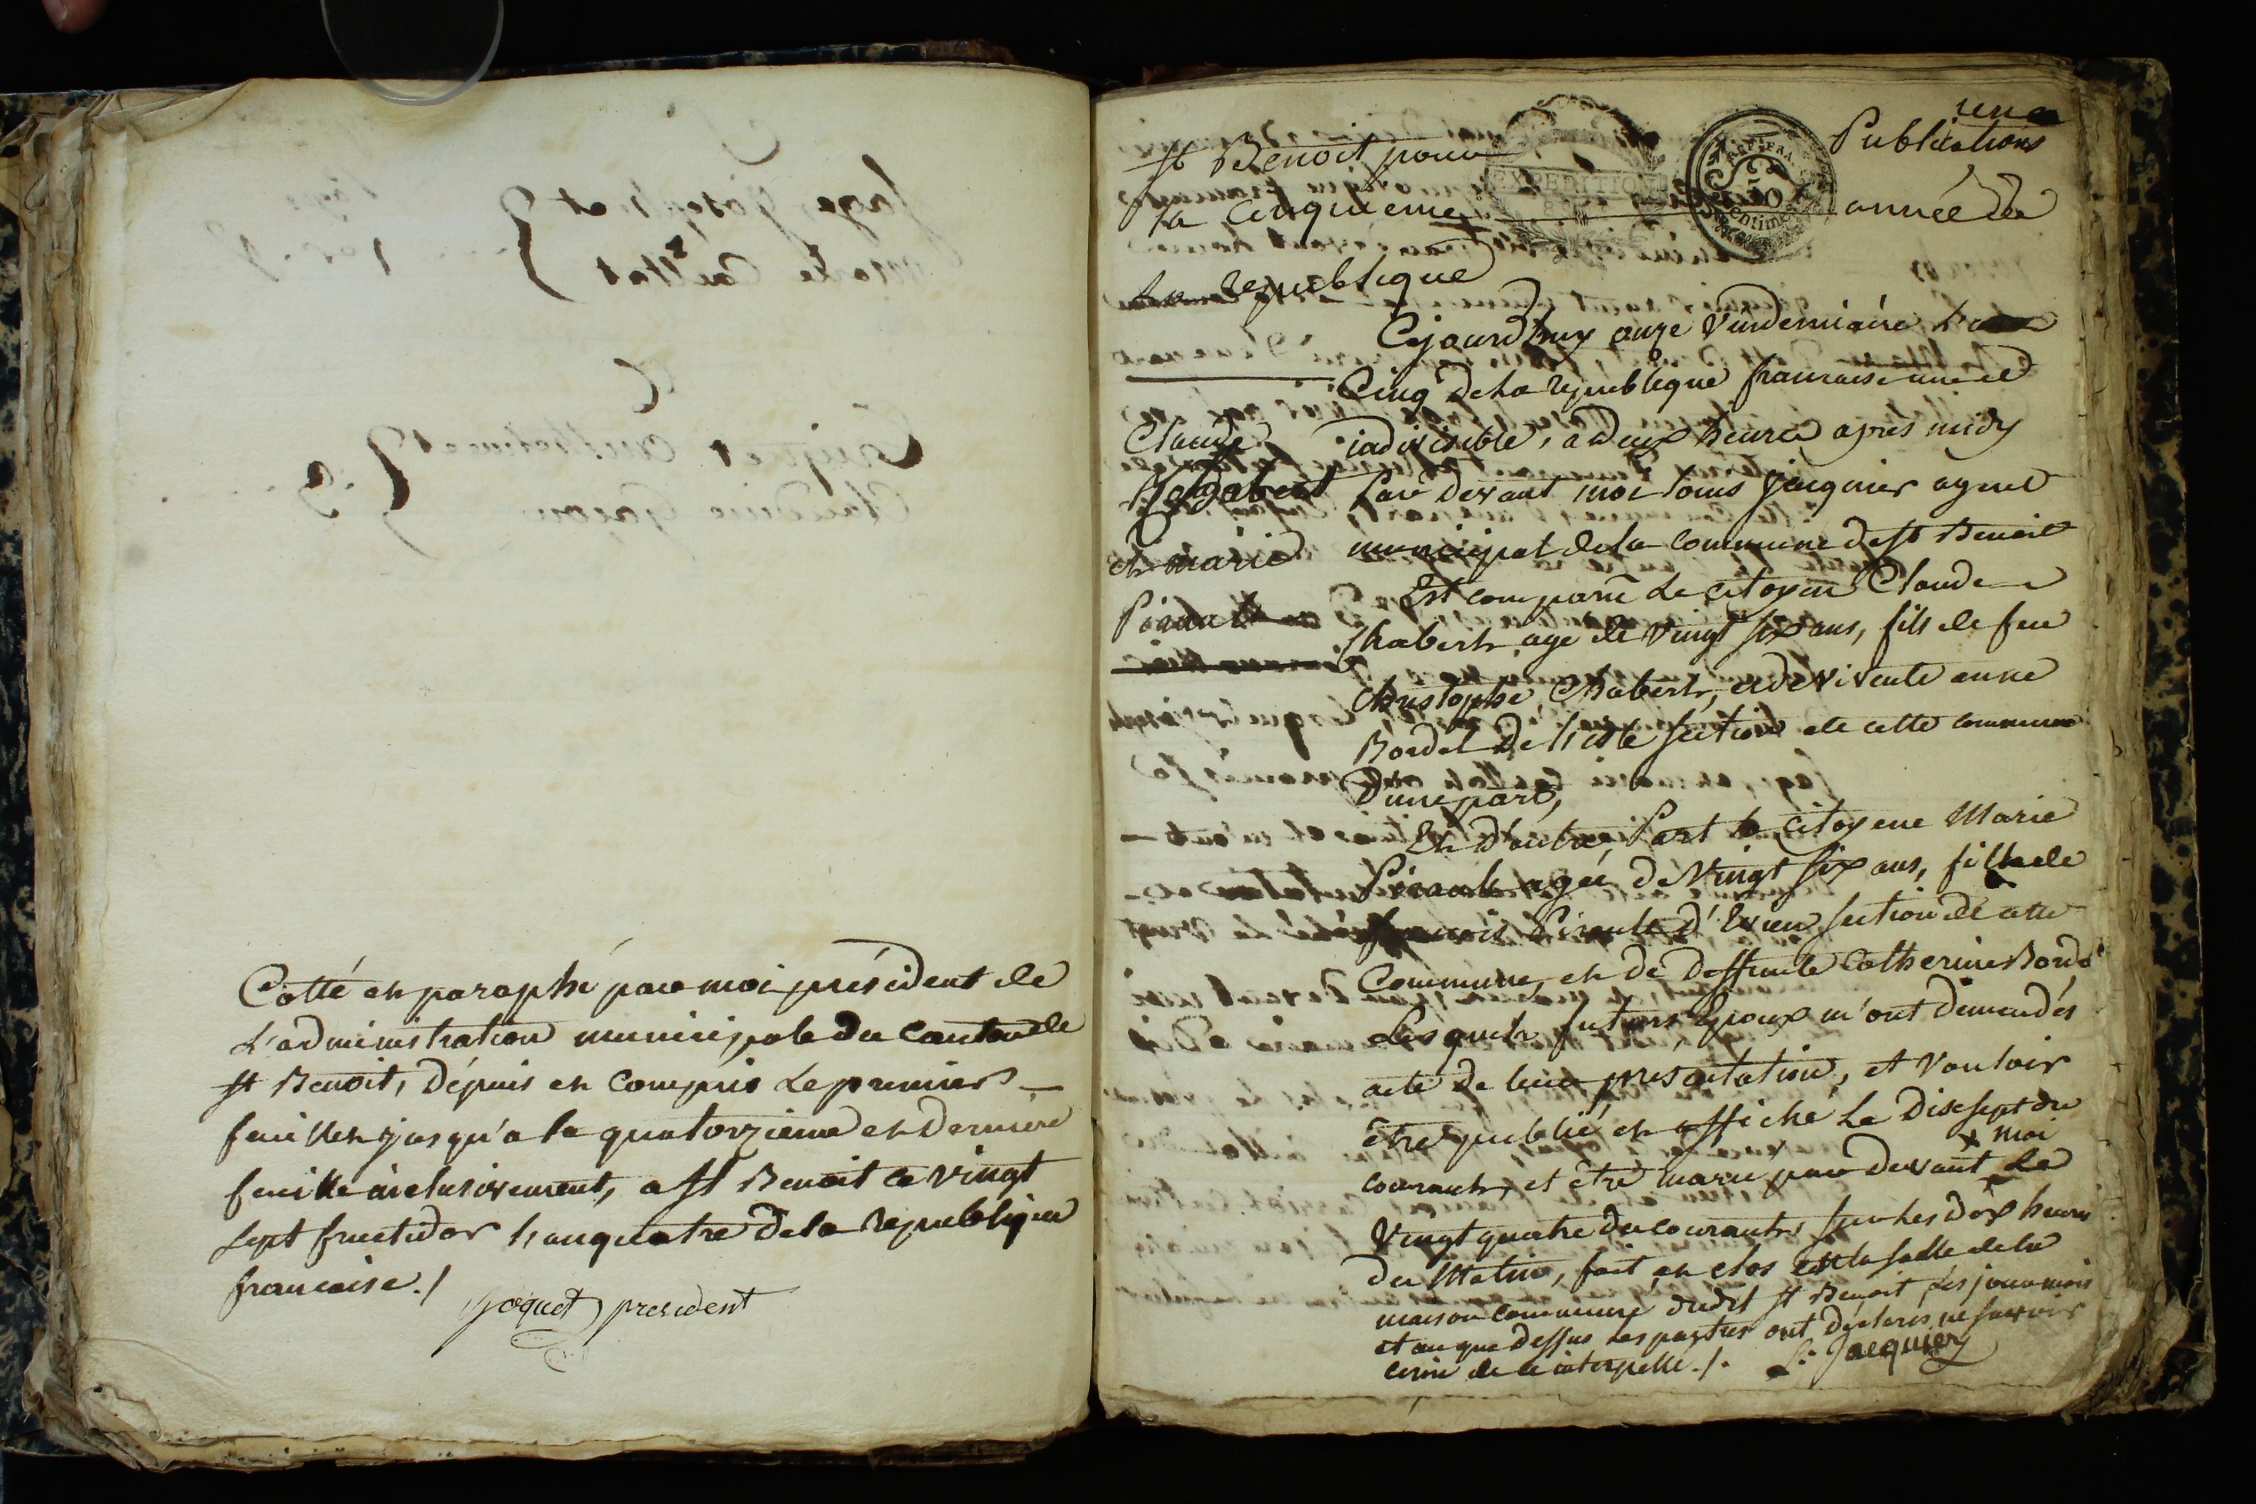 Cotté et paraphé par moi président de
L'administration municipale du canton de
St Benoit, dépuis et compris le premier
feuillet jusqu'a la quatorzieme et derniere
feuille inclusivement, a St Benoit ce vingt
sept fructidor l'anquatre de la republique
francaise ./
president
Publications
St Benoit pour
la cinquieme année de
La republique
Cejourdhuy onze Vendemiaire L'an
Cinq de la republique francaise une et
indivisible, a deux heures apres midy
Par devant moi Louis Jacquier agent
municipal de la commune de St Benoit
Est comparu Le citoyen Claude
Chabert agé de vingt six ans, fils de feu
Christophe Chabert, et de vivente anne
Bordel De l'isle section de cette commune
D'une part,
Et d'autre Part la Citoyene Marie
Pirault agée de vingt six ans, fille de
francois Pirault d'Evieu section de cette
Commune, et de deffunte Catherine Bordé
Lesquels futurs Epoux m'ont demandés
acte de leur présentation, et vouloir
être publié et affiché Le Dixsept du
courant, et etre marié par devant moi Le
Vingt quatre du courant sur les dix heures
du Matin, fait et clos en la salle de la
maison commune dudit St Benoit les jour mois
et an que dessus Les parties ont déclarés ne savoir
de ce interpellé ./. L. Jacquier
Claude
Chabert
et marie
Pirault